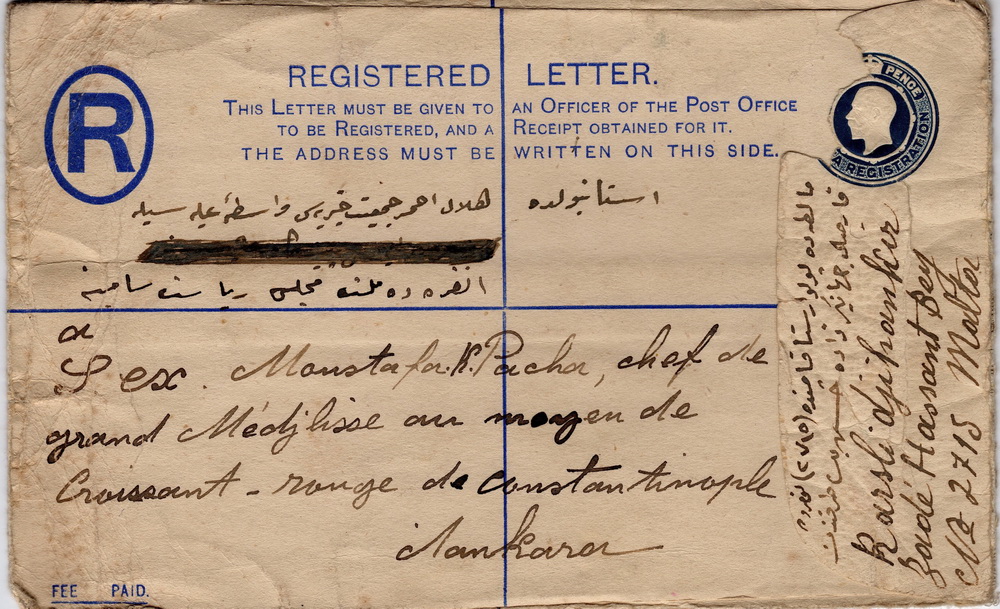 R
REGISTERED LETTER.
THIS LETTER MUST BE GIVEN TO AN OFFICER OF THE POST OFFICE
TO BE REGISTERED, AND A RECEIPT OBTAINED FOR IT.
THE ADDRESS MUST BE WRITTEN ON THIS SIDE.
PENCE
REGISTRATION
استانبولده
هلال احمر جمعيت واسطه سيله
انقره ده ملت مجلسى رياست ساميه
a
S ex. Moustafa.K.Pacha, chef de
grand Médjlisse au moyen de
Croissant-rouge de constantinople
Aankara
Karsli djihankir
Zadé Hassant Bey
No 2715 Malta
FEE PAID.